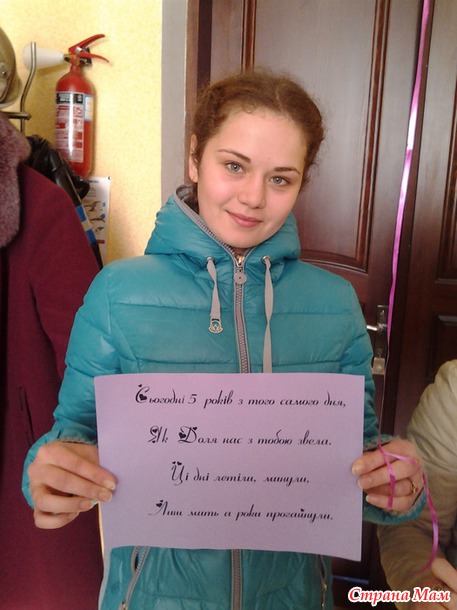 Сьогодні 5 років з того самого дня,
Як Доля нас з тобою звела.
Ці дні летіли, минули,
Лиш мить а роки прогайнули.
Страна Мам